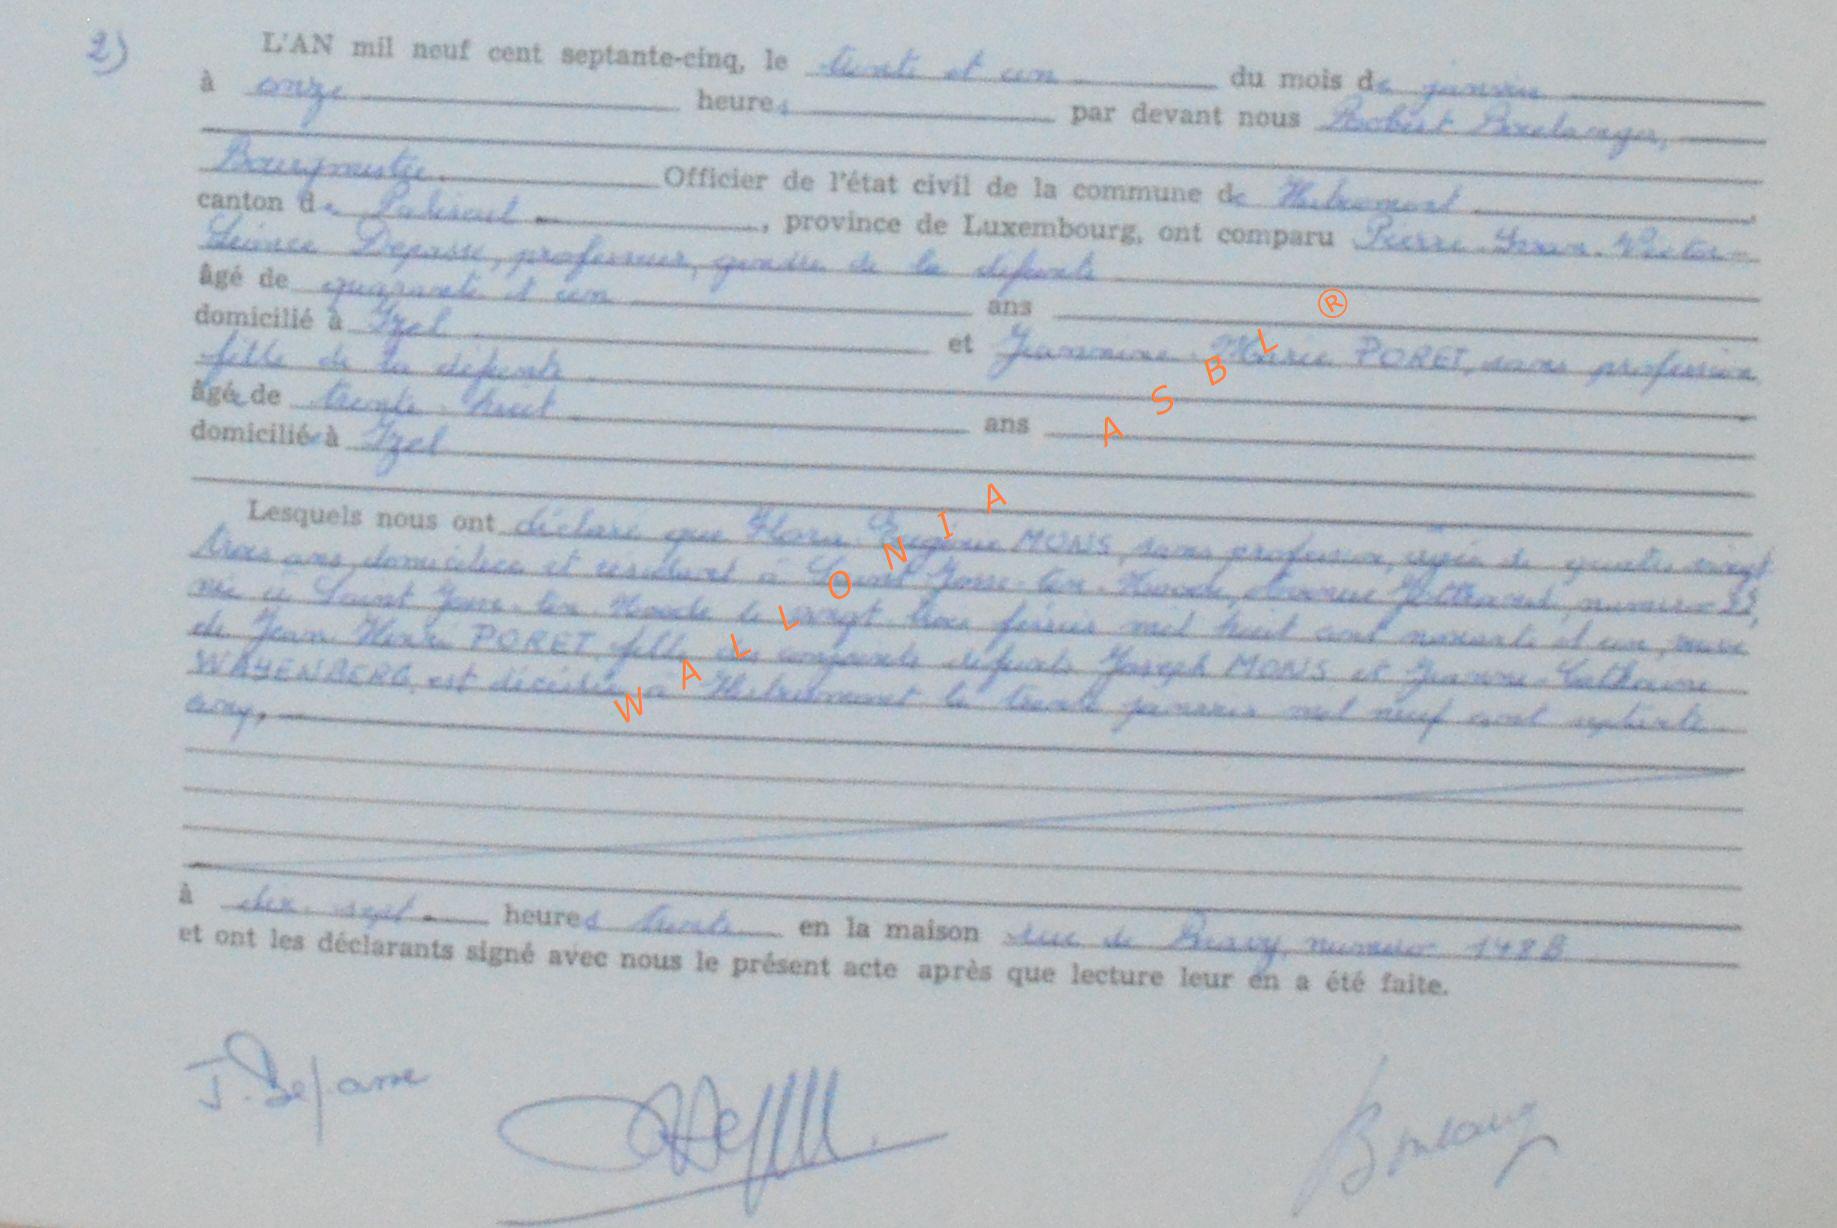 2)
L'AN mil neuf cent septante-cinq, le trente et un du mois de janvier
à onze heures par devant nous Robert Boulanger,
Bourgmestre. Officier de l'état civil de la commune de Herbeumont
canton de Paliseul, province de Luxembourg, ont comparu Pierre-Jean-Victor-
Depasse, professeur, gendre de la défunte
âgé de quarante et un ans
domicilié à Izel et Jeannine-Marie PORET, sans profession
fille de la défunte
âgée de trente-huit ans
domiciliée à Izel
Lesquels nous ont déclaré que Eugénie MONS, sans profession, âgée de quatre vingt
trois ans, domiciliée et résidant à Saint-Josse-ten-Noode, Jottrand, numéro
née à Saint-Josse-ten-Noode le vingt trois février mil huit cent nonante et un, veuve
de Jean Henri PORET, fille des conjoints défunts Joseph MONS et Jeanne-Catherine
WAYENBERG, est décédée à Herbeumont le trente janvier mil neuf cent septante
cinq,
à dix-sept heures trente en la maison rue de numéro 148B
et ont les déclarants signé avec nous le présent acte après que lecture leur en a été faite.
J. Depasse
Boulang
WALLONIA ASBL ®